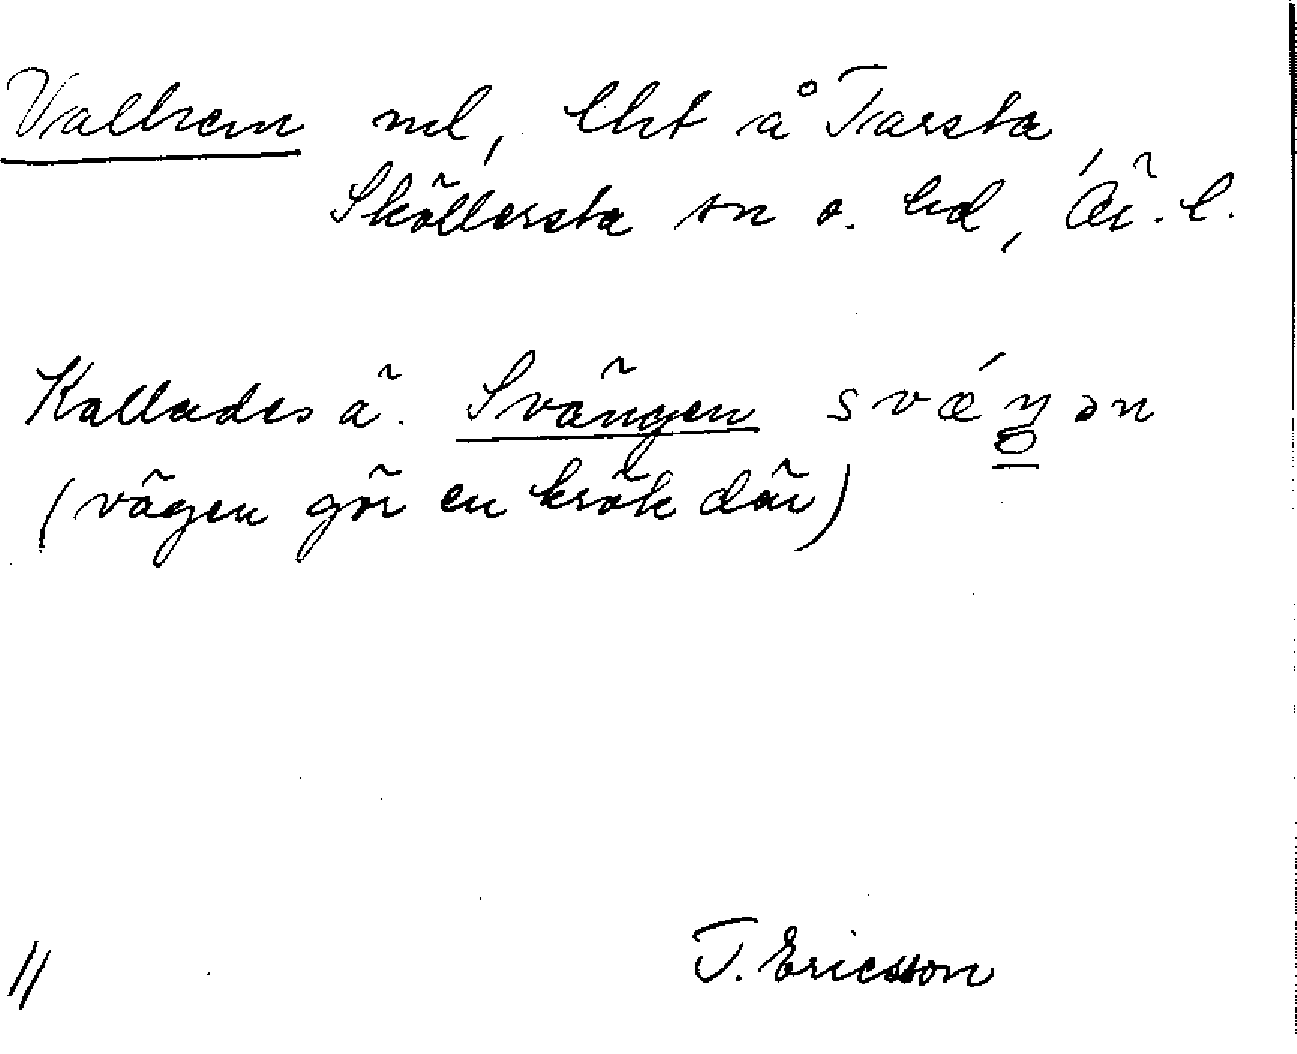 Valhem nil, lht å Tarsta,
Sköllersta sn o. hd, Ör. l.
Kallades ä. Svängen
(vägen gör en krök där)
T. Ericsson